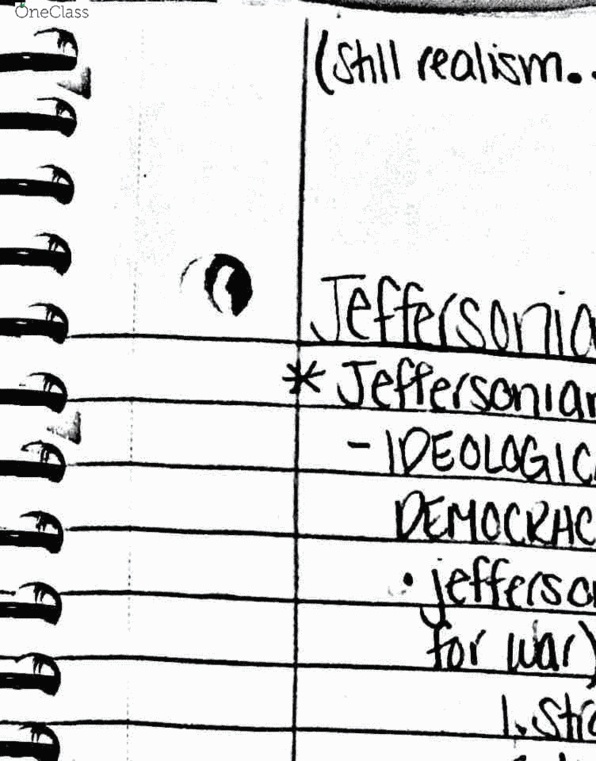 OneClass
(still realism..
Jeffersonia
* Jeffersonian
- IDEOLOGICA
DEMOCRAC
• jefferso
for war)
1. Stro